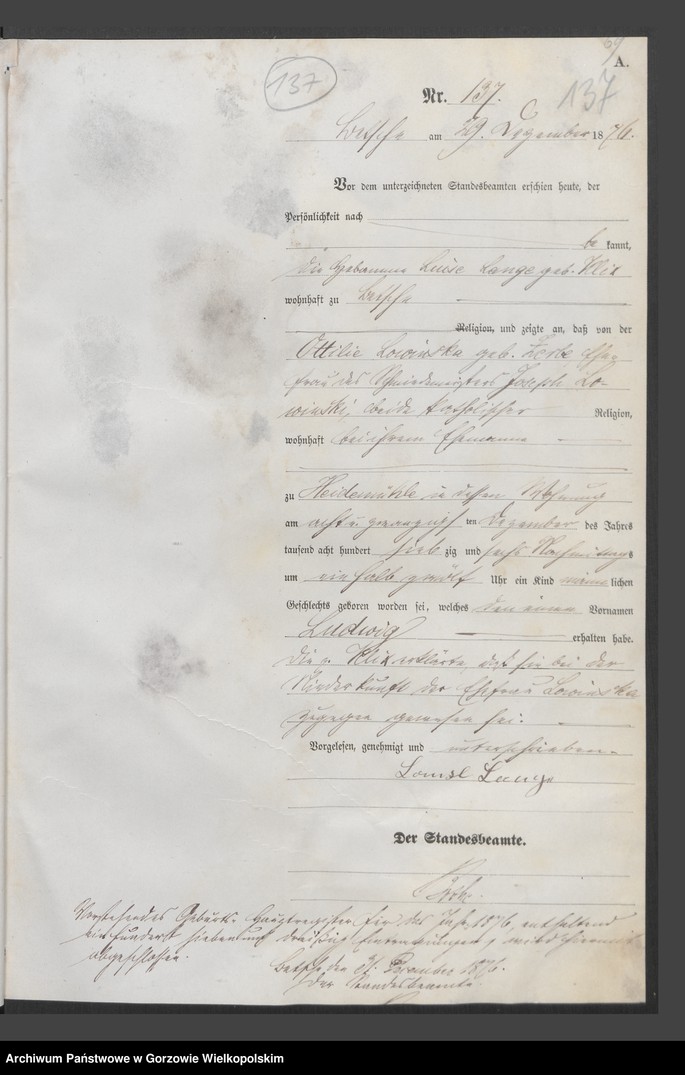 69
A.
137
137
Nr. 137.
Betsche am 29. Dezember 1876.
Vor dem unterzeichneten Standesbeamten erschien heute, der
Persönlichkeit nach
be kannt,
die Hebamme Luise Lange geb. Klix
wohnhaft zu Betsche
Religion, und zeigte an, daß von der
Ottilie Lowinska geb. Zerbe Ehe-
frau des Schmiedemeisters Joseph Lo-
winski, beide katholischer Religion,
wohnhaft bei ihrem Ehemanne
zu Heidemühle in dessen Wohnung
am acht u. zwanzigsten Dezember des Jahres
tausend acht hundert sieb zig und sechs Nachmittags
um ein halb zwölf Uhr ein Kind männlichen
Geschlechts geboren worden sei, welches den einen Vornamen
Ludwig erhalten habe.
Die Klix erklärte, daß sie bei der
Niederkunft der Ehefrau Lowinska
zugegen gewesen sei.
Vorgelesen, genehmigt und unterschrieben.
Lange
Der Standesbeamte.
Vorstehendes Geburts-Hauptregister für das Jahr 1876, enthaltend
ein hundert sieben und dreißig Eintragungen, wird hiermit
abgeschlossen.
Betsche, den 31. Dezember 1876.
Der Standesbeamte.
Archiwum Państwowe w Gorzowie Wielkopolskim